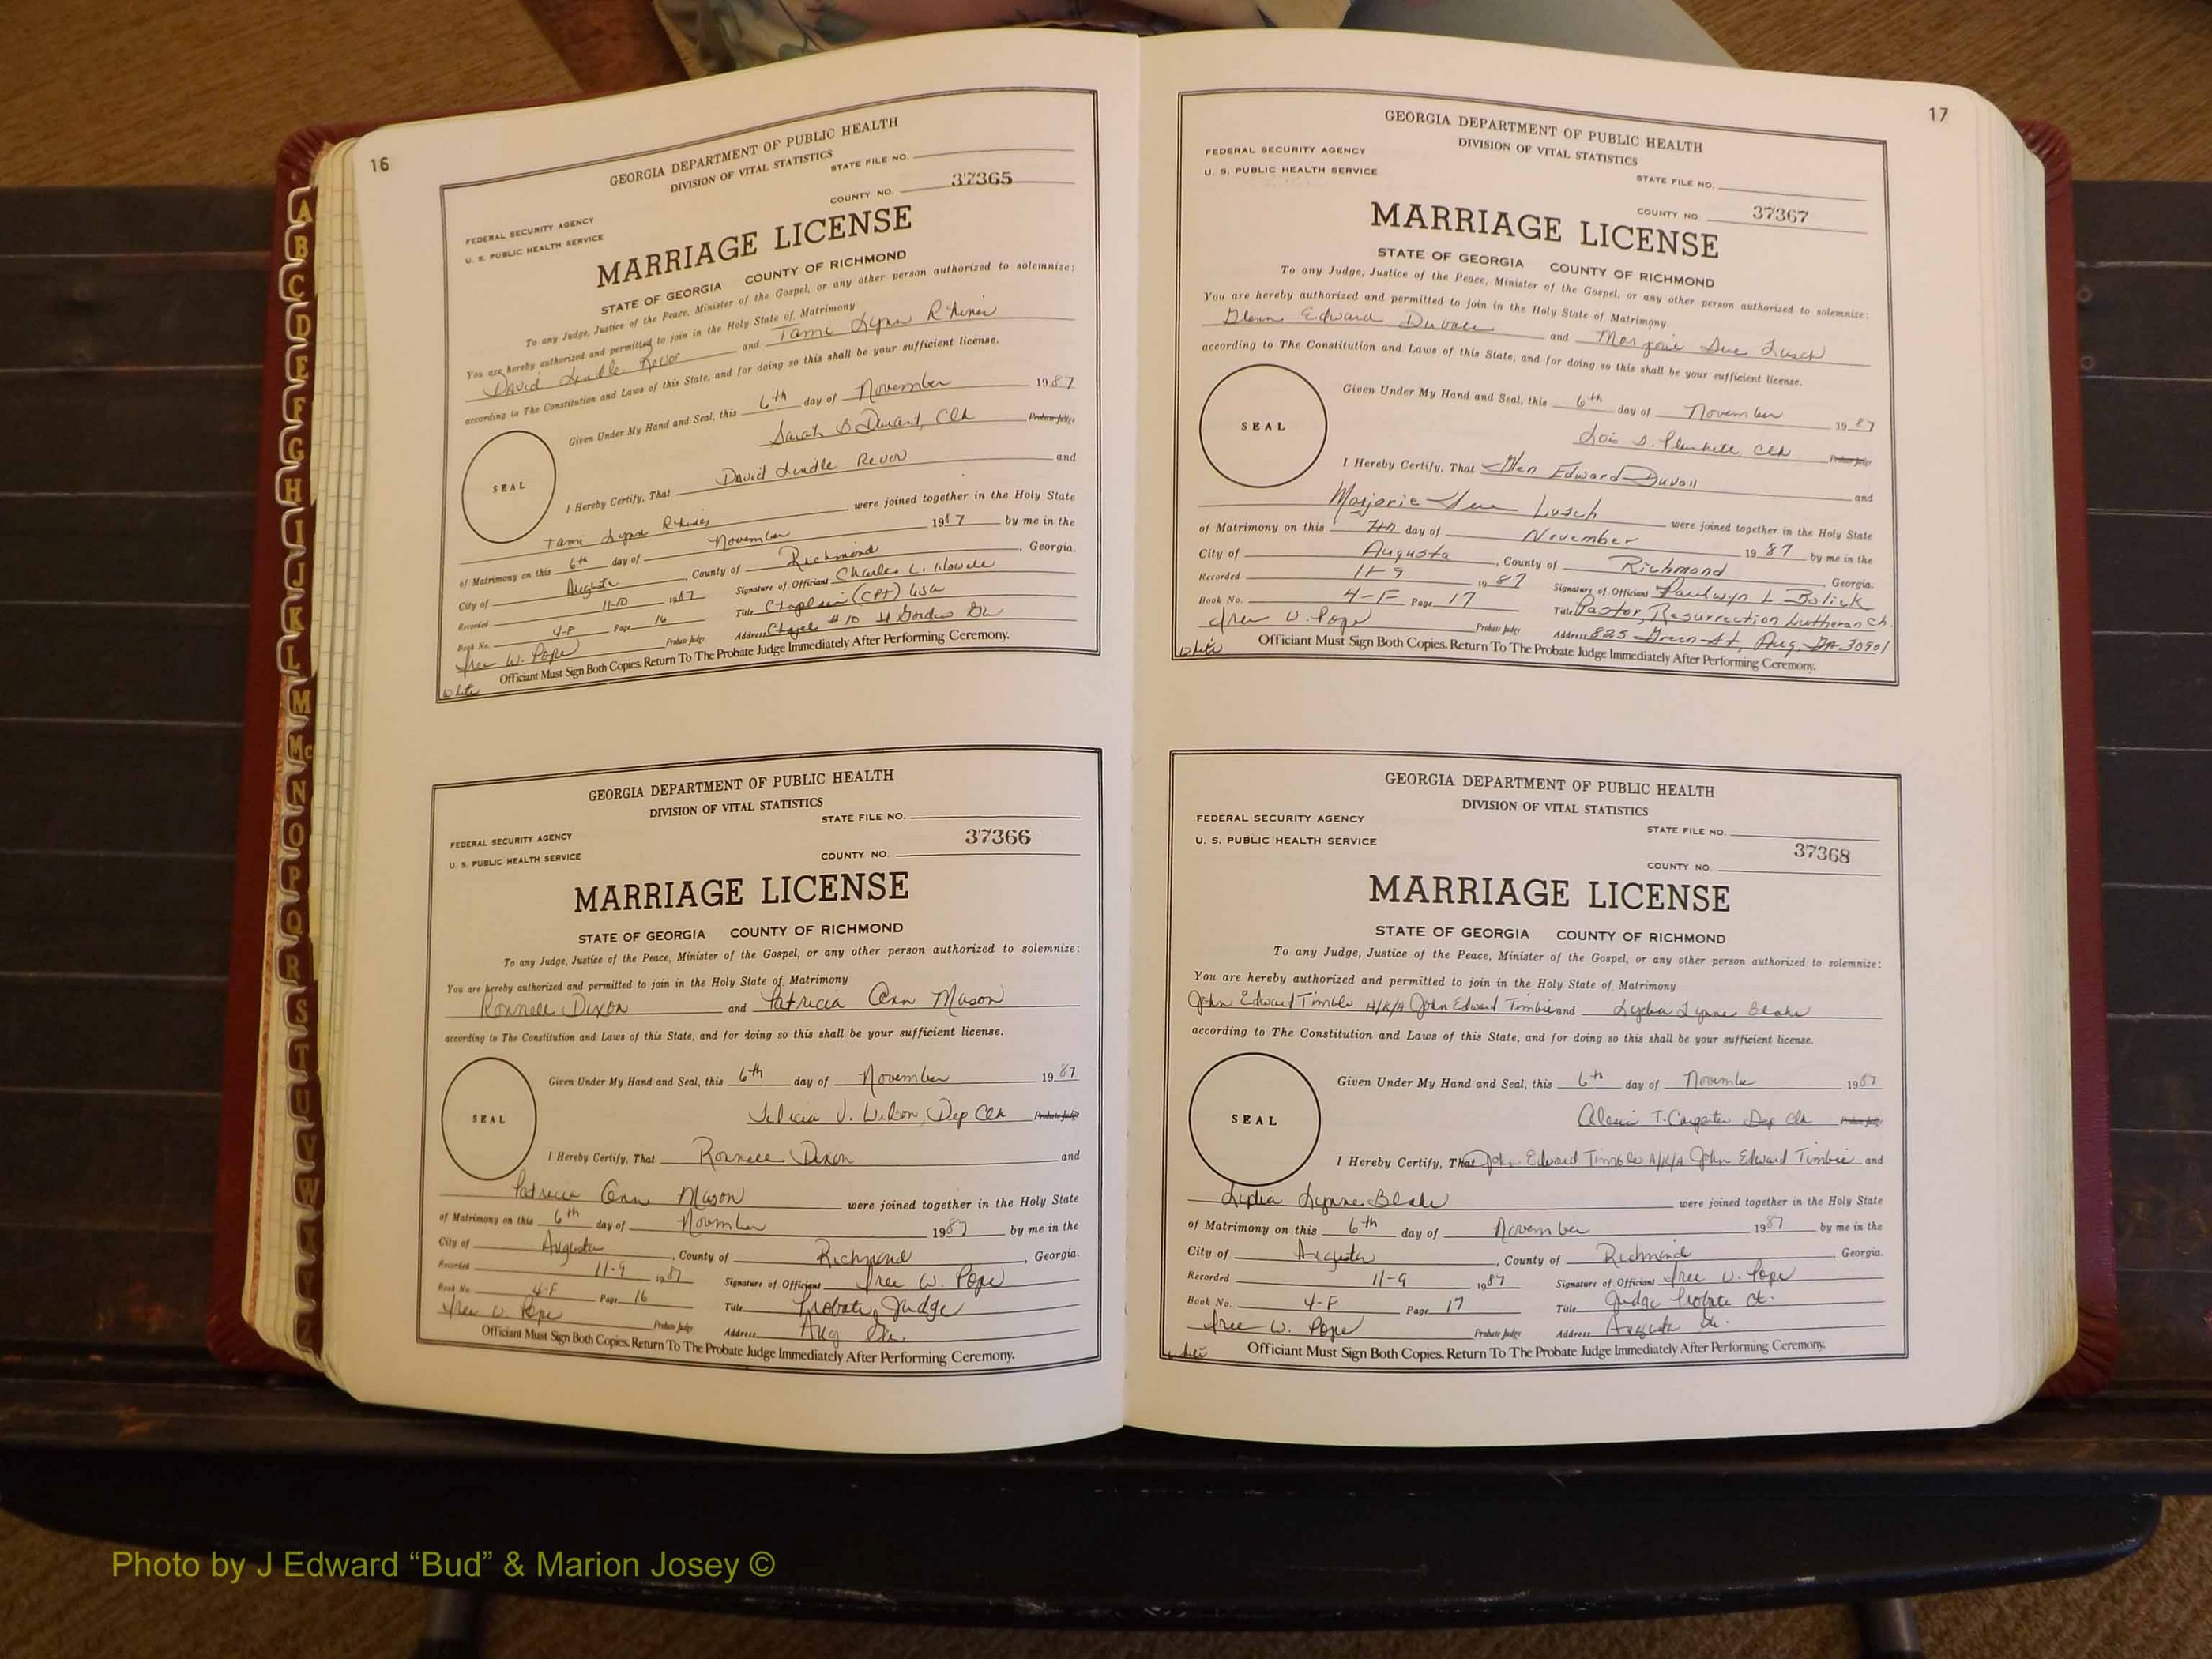 16
GEORGIA DEPARTMENT OF PUBLIC HEALTH
DIVISION OF VITAL STATISTICS
STATE FILE NO.
COUNTY NO. 37365
FEDERAL SECURITY AGENCY
U. S. PUBLIC HEALTH SERVICE
MARRIAGE LICENSE
STATE OF GEORGIA COUNTY OF RICHMOND
To any Judge, Justice of the Peace, Minister of the Gospel, or any other person authorized to solemnize:
You are hereby authorized and permitted to join in the Holy State of Matrimony
David Lindle Revor and Tami Lynn Rhines
according to The Constitution and Laws of this State, and for doing so this shall be your sufficient license.
Given Under My Hand and Seal, this 6th day of November 1987
Sarah B Durant, Clk Probate Judge
SEAL
I Hereby Certify, That David Lindle Revor and
Tami Lynn Rhines were joined together in the Holy State
of Matrimony on this 6th day of November 1987 by me in the
City of Augusta, County of Richmond, Georgia.
Recorded 11-10 1987 Signature of Officiant Charles L. Howell
Book No. 4-F Page 16 Title Chaplain (CPT) USA
Free W. Pope Probate Judge Address Chapel #10 Ft Gordon Ga
Officiant Must Sign Both Copies. Return To The Probate Judge Immediately After Performing Ceremony.
White
GEORGIA DEPARTMENT OF PUBLIC HEALTH
DIVISION OF VITAL STATISTICS
STATE FILE NO.
FEDERAL SECURITY AGENCY
37366
U. S. PUBLIC HEALTH SERVICE
COUNTY NO.
MARRIAGE LICENSE
STATE OF GEORGIA COUNTY OF RICHMOND
To any Judge, Justice of the Peace, Minister of the Gospel, or any other person authorized to solemnize:
You are hereby authorized and permitted to join in the Holy State of Matrimony
Ronnell Dixon and Patricia Ann Mason
according to The Constitution and Laws of this State, and for doing so this shall be your sufficient license.
Given Under My Hand and Seal, this 6th day of November 1987
Felicia J. Wilson, Dep Clk Probate Judge
SEAL
I Hereby Certify, That Ronnell Dixon and
Patricia Ann Mason were joined together in the Holy State
of Matrimony on this 6th day of November 1987 by me in the
City of Augusta, County of Richmond, Georgia.
Recorded 11-9 1987 Signature of Officiant Free W. Pope
Book No. 4-F Page 16 Title Probate Judge
Free W. Pope Probate Judge Address Aug Ga.
Officiant Must Sign Both Copies. Return To The Probate Judge Immediately After Performing Ceremony.
17
GEORGIA DEPARTMENT OF PUBLIC HEALTH
DIVISION OF VITAL STATISTICS
FEDERAL SECURITY AGENCY
U. S. PUBLIC HEALTH SERVICE
STATE FILE NO.
COUNTY NO. 37367
MARRIAGE LICENSE
STATE OF GEORGIA COUNTY OF RICHMOND
To any Judge, Justice of the Peace, Minister of the Gospel, or any other person authorized to solemnize:
You are hereby authorized and permitted to join in the Holy State of Matrimony
Glenn Edward Duvall and Marjorie Sue Lusch
according to The Constitution and Laws of this State, and for doing so this shall be your sufficient license.
Given Under My Hand and Seal, this 6th day of November 1987
Lois D. Plunkett, Clk Probate Judge
SEAL
I Hereby Certify, That Glen Edward Duvall and
Marjorie Sue Lusch were joined together in the Holy State
of Matrimony on this 7th day of November 1987 by me in the
City of Augusta, County of Richmond, Georgia.
Recorded 11-9 1987 Signature of Officiant Paulwyn L Bolick
Book No. 4-F Page 17 Title Pastor, Resurrection Lutheran Ch.
Free W. Pope Probate Judge Address 825 Green St, Aug. GA. 30901
White
Officiant Must Sign Both Copies. Return To The Probate Judge Immediately After Performing Ceremony.
GEORGIA DEPARTMENT OF PUBLIC HEALTH
DIVISION OF VITAL STATISTICS
FEDERAL SECURITY AGENCY
STATE FILE NO.
U. S. PUBLIC HEALTH SERVICE
37368
COUNTY NO.
MARRIAGE LICENSE
STATE OF GEORGIA COUNTY OF RICHMOND
To any Judge, Justice of the Peace, Minister of the Gospel, or any other person authorized to solemnize:
You are hereby authorized and permitted to join in the Holy State of Matrimony
John Edward Timble A/K/A John Edward Timbie and Lydia Lynne Blake
according to The Constitution and Laws of this State, and for doing so this shall be your sufficient license.
Given Under My Hand and Seal, this 6th day of November 1987
T. Carpenter Dep Clk Probate Judge
SEAL
I Hereby Certify, That John Edward Timble A/K/A John Edward Timbie and
Lydia Lynne Blake were joined together in the Holy State
of Matrimony on this 6th day of November 1987 by me in the
City of Augusta, County of Richmond, Georgia.
Recorded 11-9 1987 Signature of Officiant Free W. Pope
Book No. 4-F Page 17 Title Judge Probate Ct.
Free W. Pope Probate Judge Address Augusta Ga.
White
Officiant Must Sign Both Copies. Return To The Probate Judge Immediately After Performing Ceremony.
A
B
C
D
E
F
G
H
I
J
K
L
M
Mc
N
O
P
Q
R
S
T
U
V
W
Photo by J Edward “Bud” & Marion Josey ©